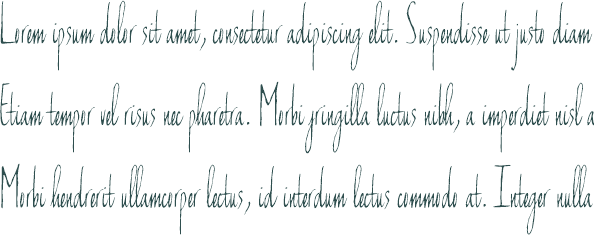 Lorem ipsum dolor sit amet, consectetur adipiscing elit. Suspendisse ut justo diam
Etiam tempor vel risus nec pharetra. Morbi fringilla luctus nibh, a imperdiet nisl a
Morbi hendrerit ullamcorper lectus, id interdum lectus commodo at. Integer nulla